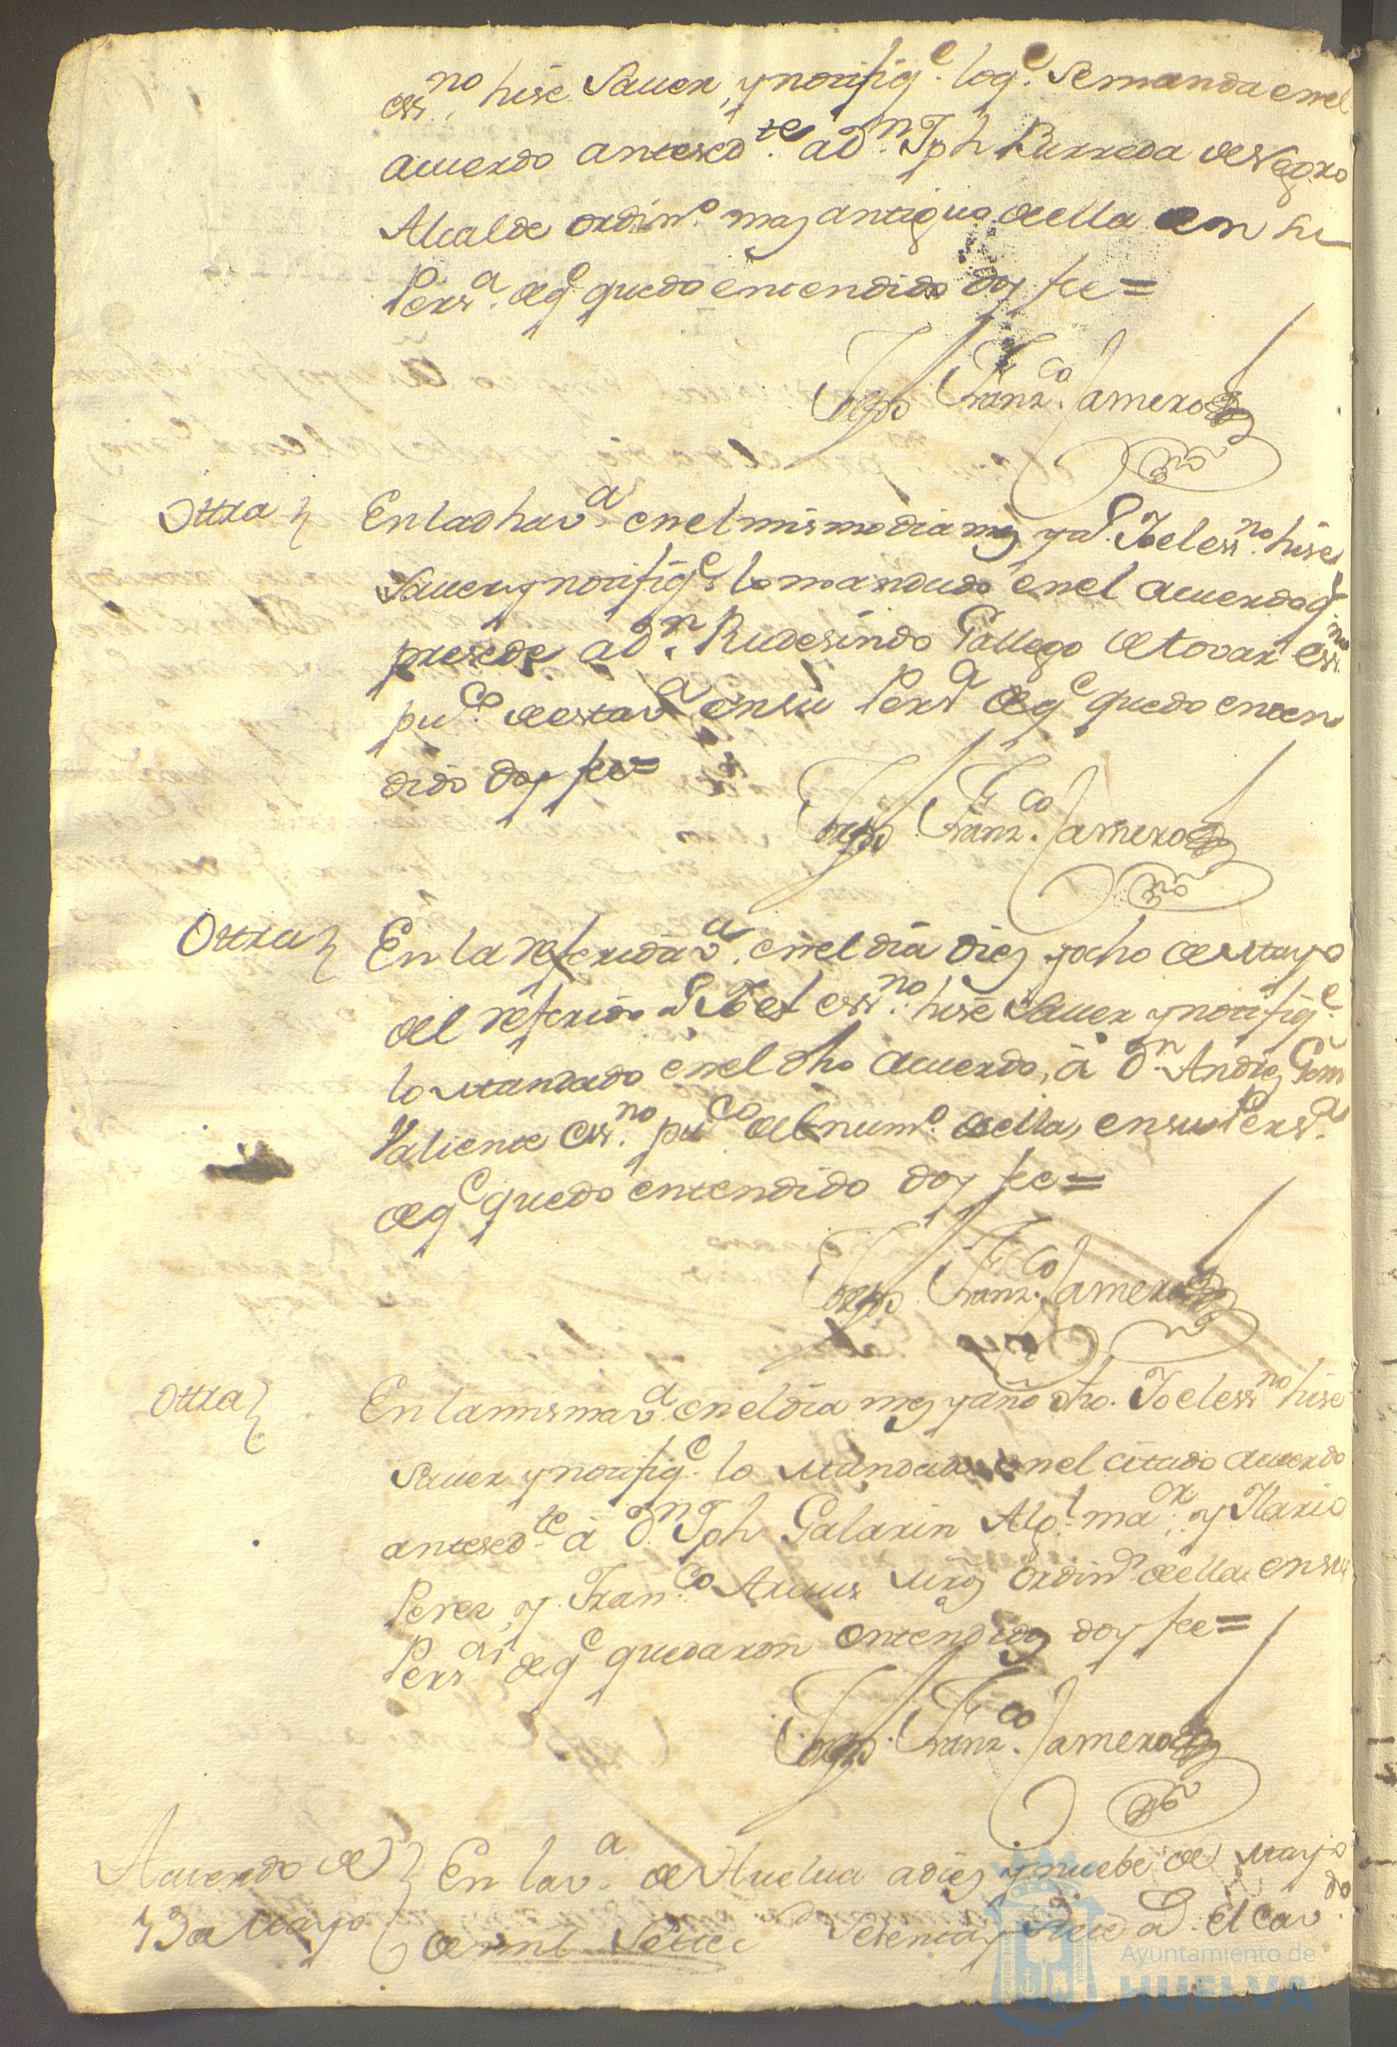 essno hise Sauer, y notifiqe loqe Semanda enel
acuerdo antesedte a Dn Jph Barreda
Alcalde ordino mas antiguo de ella en su
Persa deqe quedo entendido doy fee=
Franzco Jamero
Ottra En la dha va en el mismo dia mes y aº Yo el essno hise
Sauer y notifiqe lo mandado en el acuerdo qe
presede a Dn Rudesindo Gallego de tovar essno
puco de esta va en su Persa deqe quedo enten
dido doy fee=
Franzco Jamero
Ottra En la referida va en el dia dies y ocho de Mayo
del referido aº Yo el essno hise Sauer y notifiqe
lo Mandado en el dho acuerdo, à Dn Andres Gom
Valiente essno puco del numo de ella, en su Persa
deqe quedo entendido doy fee=
Franzco Jamero
Ottra En la misma va en el dia mes y año dho. Yo el essno hise
Sauer y notifiqe lo Mandado en el citado acuerdo
antesedte à Dn Jph Galarin Algl maor y Ilario
Perez, y Franco ordinos de ella en sus
Persas deqe quedaron entendidos doy fee=
Franzco Jamero
Acuerdo de En la va de Huelua a dies y nuebe de Mayo
19 de Mayo de mil Setteci Setenta y Siete aº el cavdo
Ayuntamiento de
HUELVA